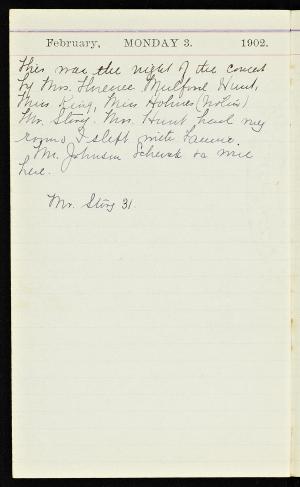 February, MONDAY 3. 1902.
This was the night of the concert
by Mrs. Florence Mulford Hunt,
Miss King, Miss Holmes (Violin)
Mr. Story. Mrs. Hunt had my
room, I slept with Fannie.
Mr. Johnson Schenck &
here.
Mr. Story 31.